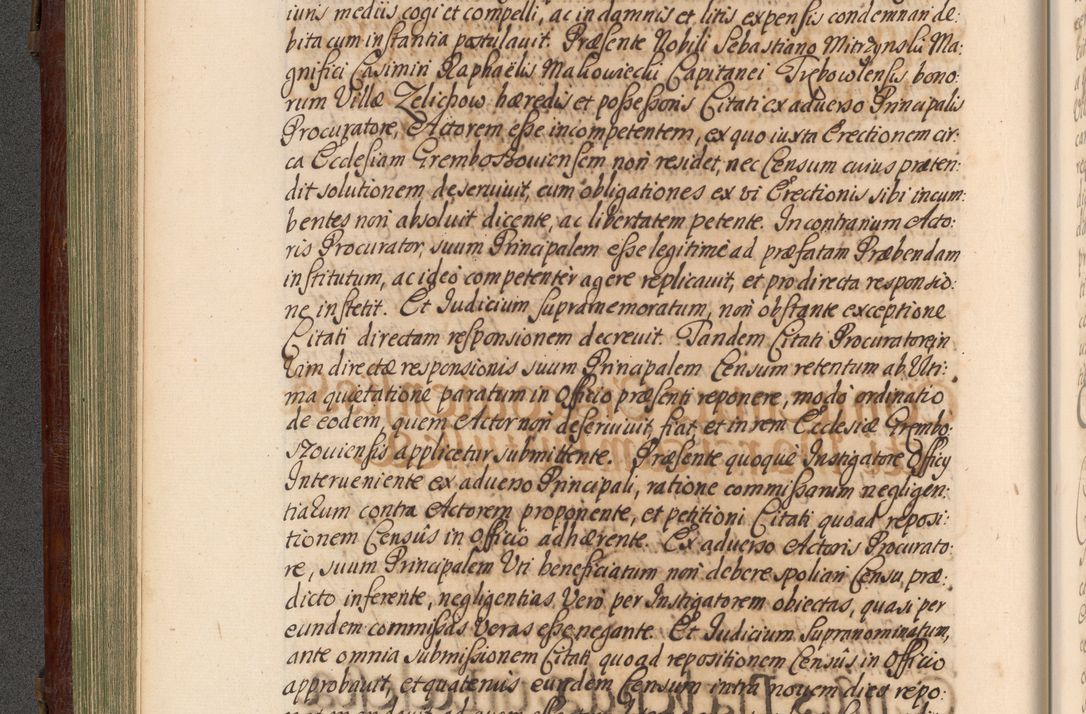 iuris mediis cogi et compelli, ac in damnis et litis expensis condemnari de:
bita cum instantia postulavit. Præsente Nobili Sebastiano Mitrzynski Ma:
gnifici Casimiri Raphaëlis Makowiecki Capitanei Trębowolensis bono:
rum Villæ Zelichow hæredis et possessoris Citati ex adverso Principalis
Procuratore, Actorem esse incompetentem, ex quo iuxta Erectionem cir:
ca Ecclesiam Grembossoviensem non residet, nec Censum cuius præten:
dit solutionem deservivit, cum obligationes ex vi Erectionis sibi incum:
bentes non absolvit dicente, ac libertatem petente. In contrarium Acto:
ris Procurator, suum Principalem esse legitime ad præfatam Præbendam
institutum, ac ideo competenter agere replicavit, et pro directa responsio:
ne institit. Et Iudicium supramemoratum, non obstante exceptione
Citati directam responsionem decrevit. Tandem Citati Procuratore in
vim directæ responsionis suum Principalem Censum retentum ab Ulti:
ma quietatione paratum in Officio præsenti reponere, modo ordinatio
de eodem, quem Actor non deservivit, fiat, et in rem Ecclesiæ Grembo:
szoviensis applicetur submittente. Præsente quoque Instigatore Officij
Interveniente ex adverso Principali, ratione commissarum negligen:
tiarum contra Actorem proponente, et petitioni Citati quoad reposi:
tionem Censûs in Officio adhærente. Ex adverso Actoris Procurato:
re, suum Principalem Uti beneficiatum non debere spoliari Censu, præ:
dicto inferente, negligentias Vero per Instigatorem obiectas, quasi per
eundem commissas Veras esse negante. Et Iudicium supranominatum,
ante omnia submissionem Citati quoad repositionem Censûs in Officio
approbavit, et quatenus eundem Censum intra novem dies repo: